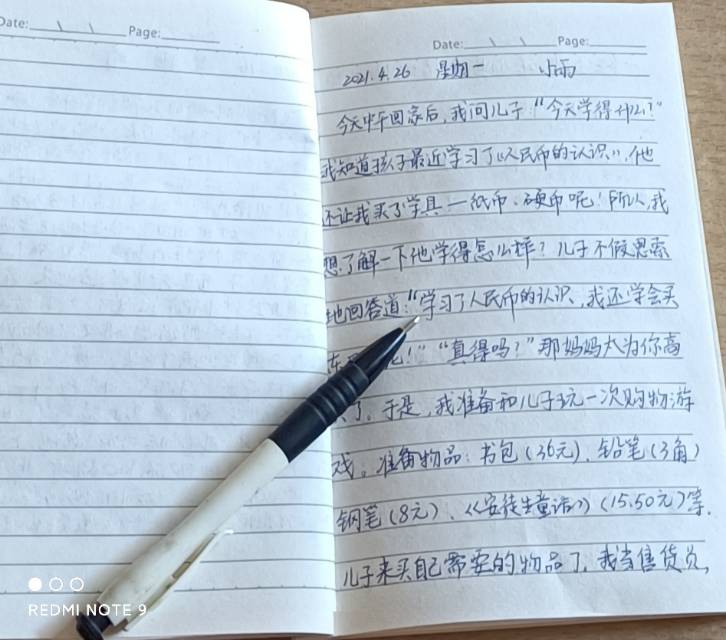 Date: \ \ Page:
Date: \ \ Page:
2021.4.26 星期一 小雨
今天中午回家后,我问儿子:"今天学得什么?"
我知道孩子最近学习了《人民币的认识》,他
还让我买了学具——纸币、硬币呢!所以,我
想了解一下他学得怎么样?儿子不假思索
地回答道:"学习了人民币的认识,我还学会买
东 呢!" "真得吗?"那妈妈太为你高
了。于是,我准备和儿子玩一次购物游
戏。准备物品:书包(36元)、铅笔(3角)
钢笔(8元)、《安徒生童话》(15.50元)等.
儿子来买自己需要的物品了,我当售货员,
REDMI NOTE 9